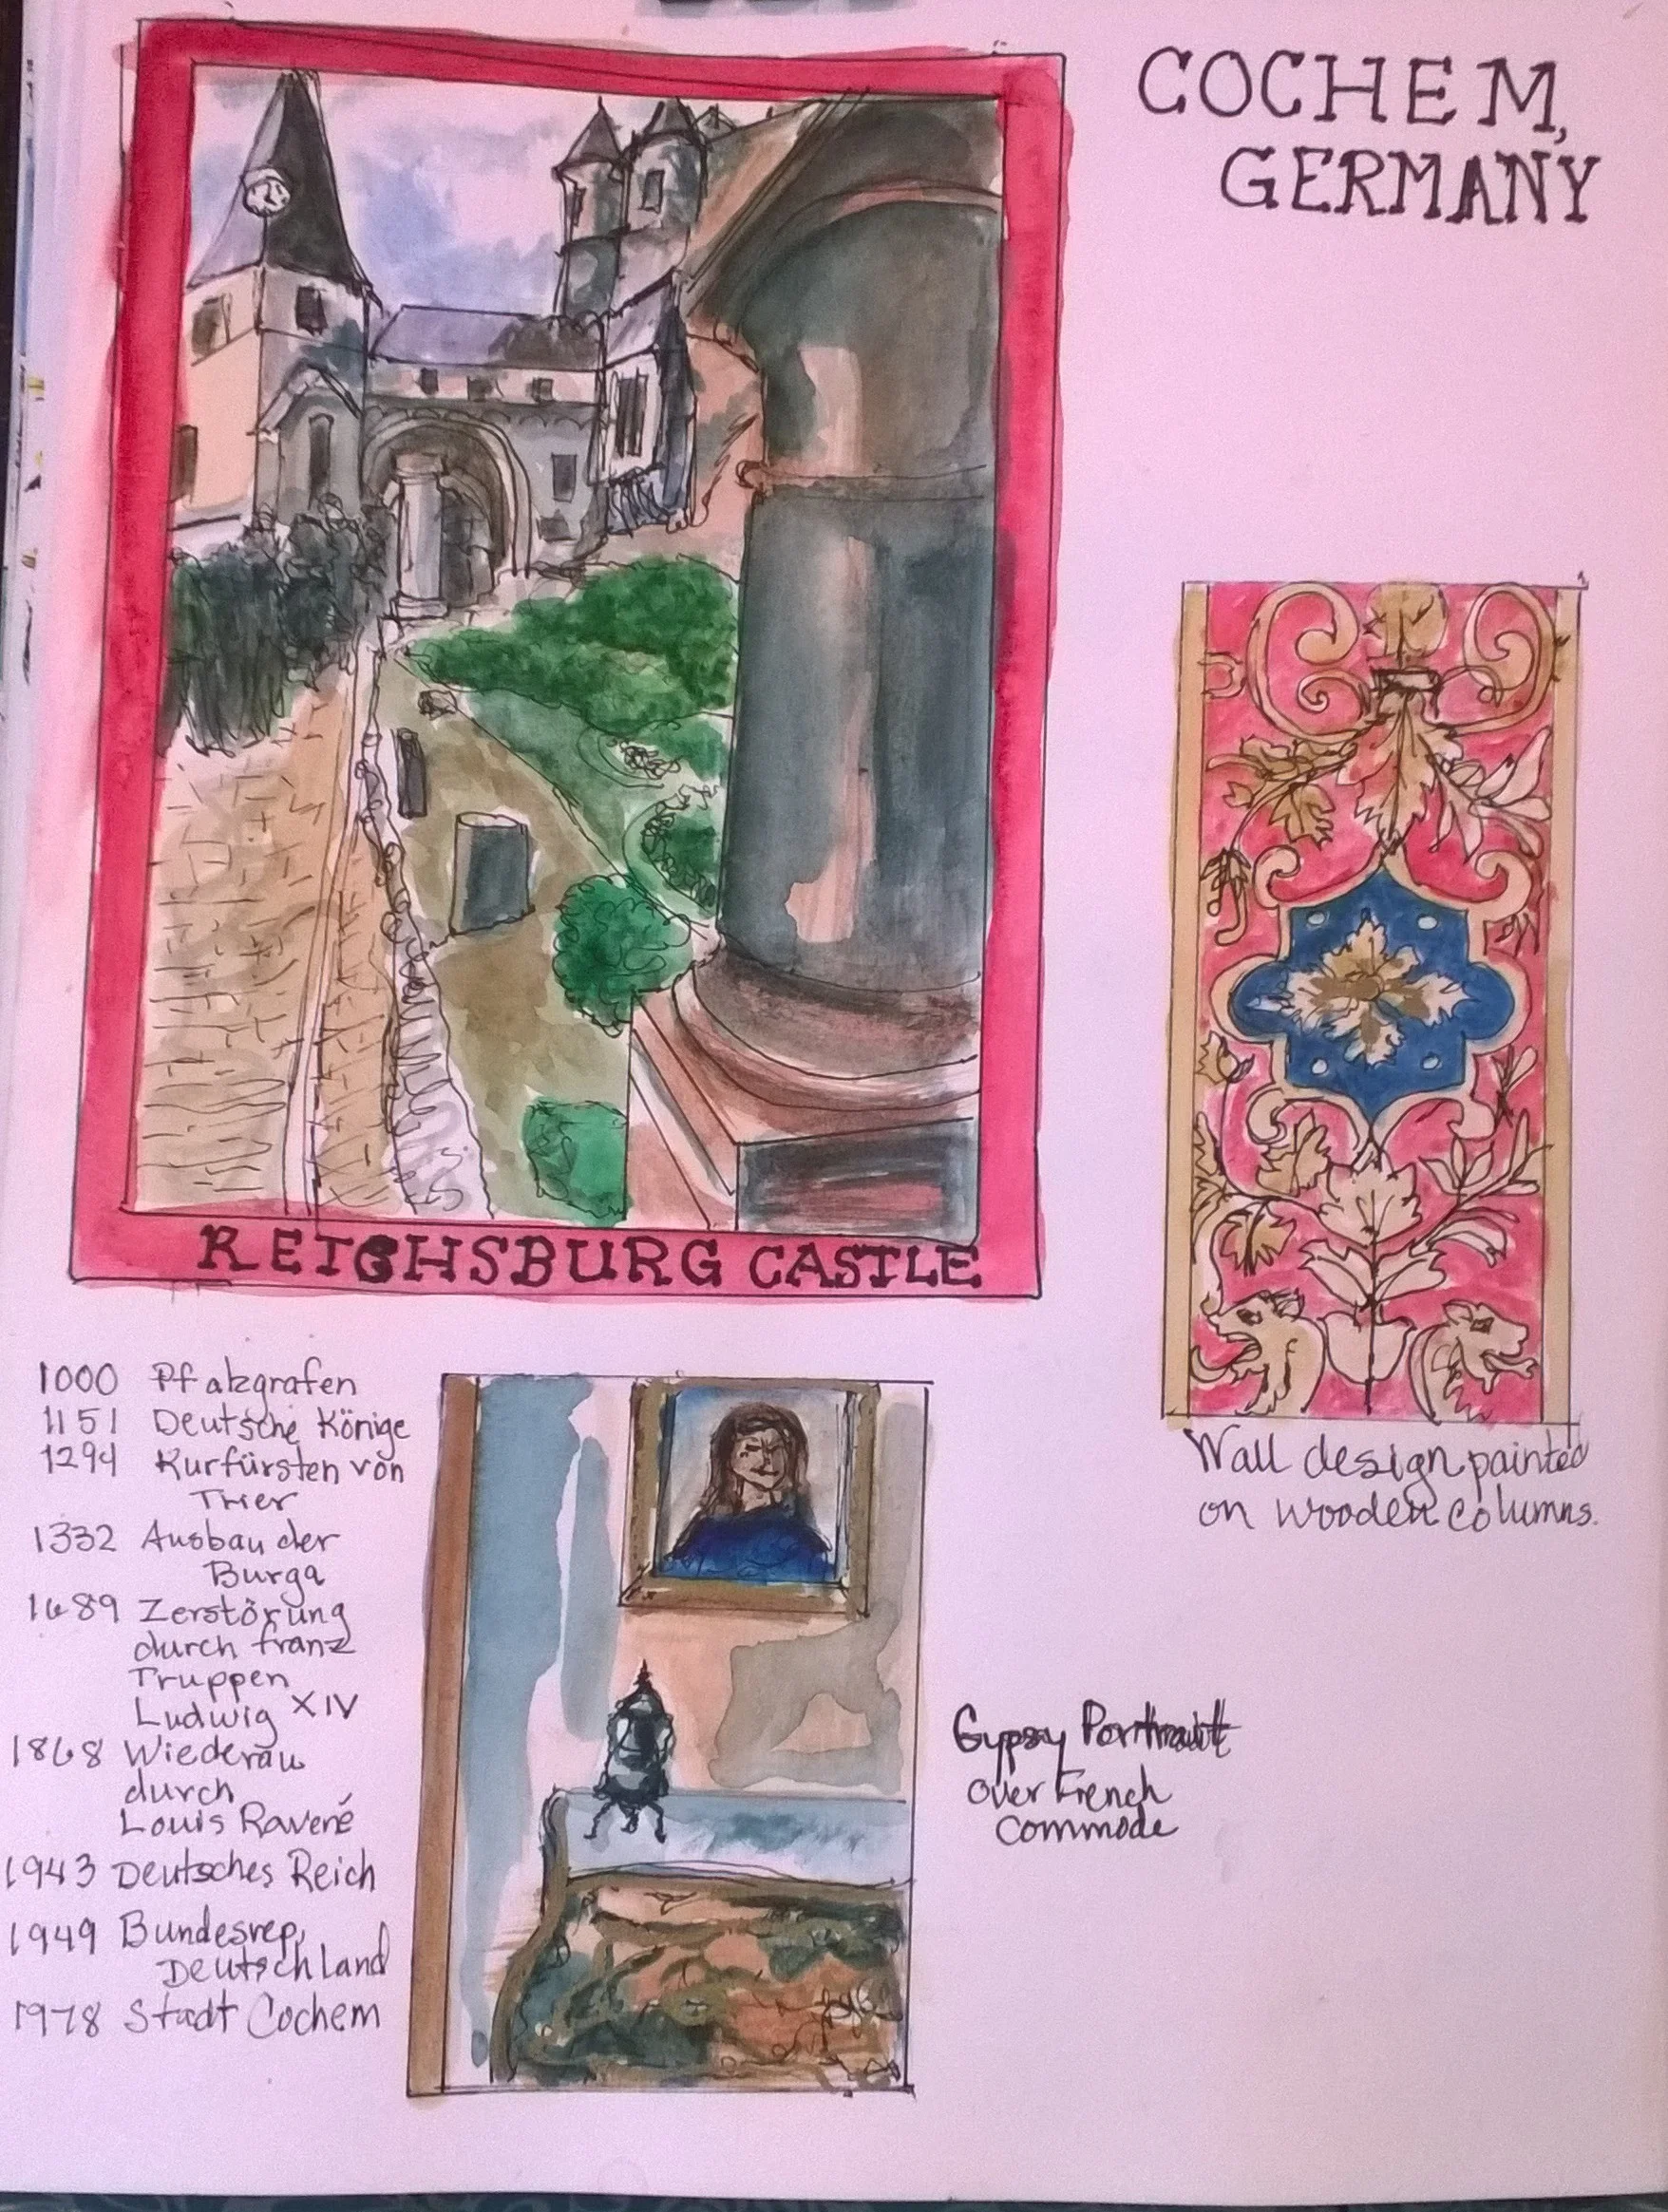 COCHEM,
GERMANY
REICHSBURG CASTLE
Wall design painted
on wooden columns.
1000 Pfalzgrafen
1151 Deutsche Könige
1294 Kurfürsten von
Trier
1332 Ausbau der
Burga
1689 Zerstörung
durch franz
Truppen
Ludwig XIV
1868 Wiederau
durch
Louis Ravené
1943 Deutsches Reich
1949 Bundesrep,
Deutschland
1978 Stadt Cochem
Gypsy Portrait
Over French
Commode